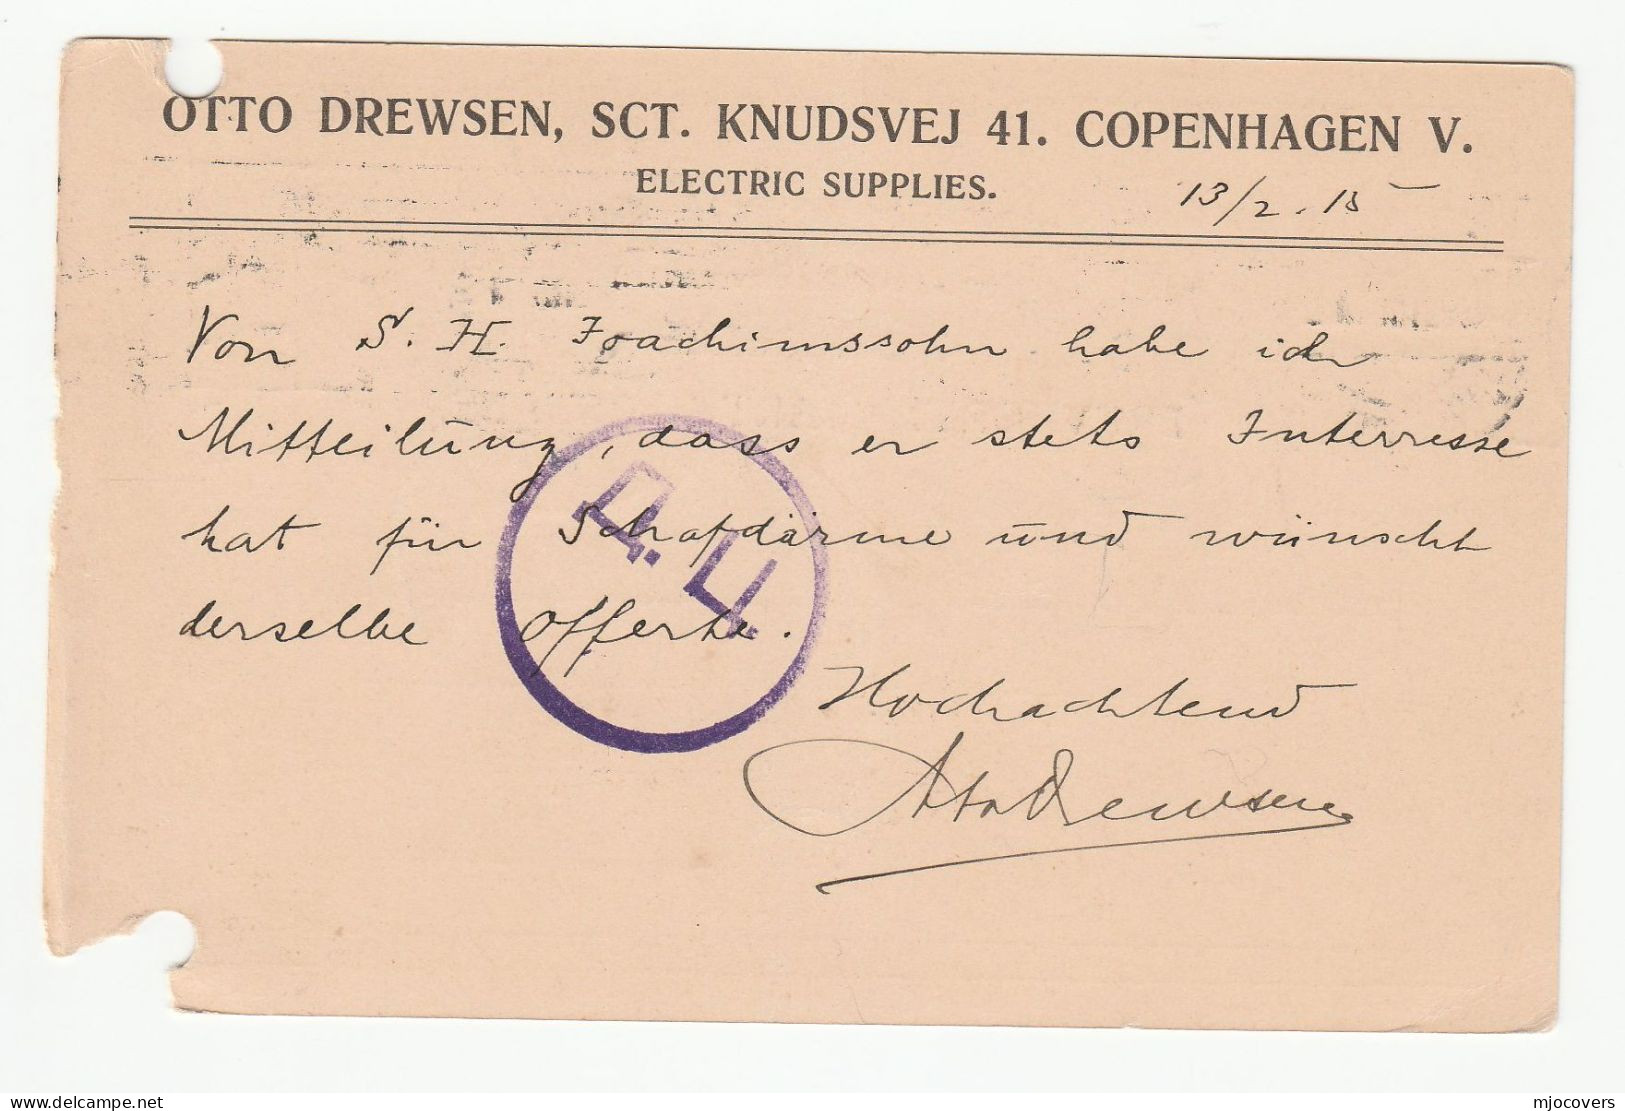 OTTO DREWSEN, SCT. KNUDSVEJ 41. COPENHAGEN V.
ELECTRIC SUPPLIES.
13/2. 15
Von S. H. Joachimssohn habe ich
Mitteilung, dass er stets Interresse
hat für Schafdärme und wünscht
derselbe Offerte.
Hochachtend
Otto Drewsen
Д. Ц.
mjocovers